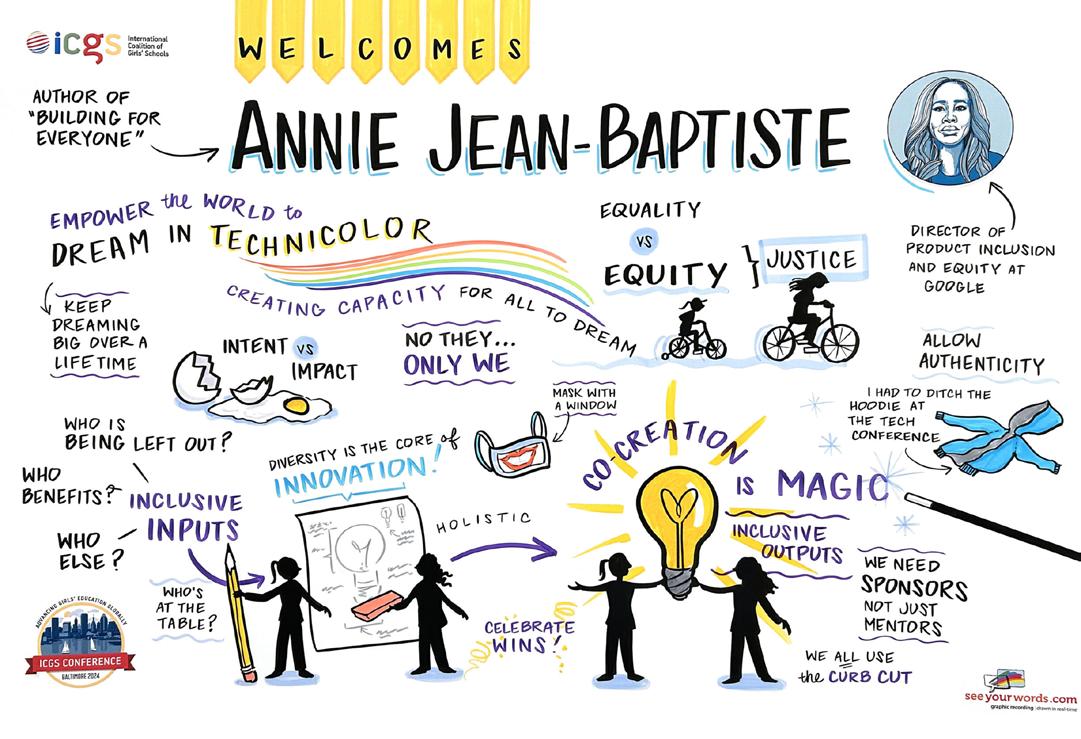 icgs
International
Coalition of
Girls' Schools
WELCOMES
AUTHOR OF
"BUILDING FOR
EVERYONE"
ANNIE JEAN-BAPTISTE
DIRECTOR OF
PRODUCT INCLUSION
AND EQUITY AT
GOOGLE
EMPOWER the WORLD to
DREAM IN TECHNICOLOR
CREATING CAPACITY FOR ALL TO DREAM
KEEP
DREAMING
BIG OVER A
LIFETIME
EQUALITY
VS
EQUITY
JUSTICE
INTENT VS
IMPACT
NO THEY...
ONLY WE
ALLOW
AUTHENTICITY
I HAD TO DITCH THE
HOODIE AT
THE TECH
CONFERENCE
MASK WITH
A WINDOW
WHO IS
BEING LEFT OUT?
WHO
BENEFITS?
WHO
ELSE?
INCLUSIVE
INPUTS
WHO'S
AT THE
TABLE?
DIVERSITY IS THE CORE of
INNOVATION!
HOLISTIC
CO-CREATION
IS MAGIC
INCLUSIVE
OUTPUTS
CELEBRATE
WINS!
WE NEED
SPONSORS
NOT JUST
MENTORS
WE ALL USE
the CURB CUT
ADVANCING GIRLS' EDUCATION GLOBALLY
ICGS CONFERENCE
BALTIMORE 2024
seeyourwords.com
graphic recording | drawn in real-time